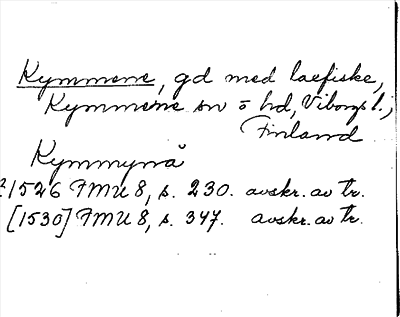 Kymmene, gd med laxfiske,
Kymmene sn o hd, Viborgs l.,
Finland
Kymmynrå
1526 FMU 8, s. 230. avskr. av Tr.
[1530] FMU 8, s. 347. avskr. av Tr.